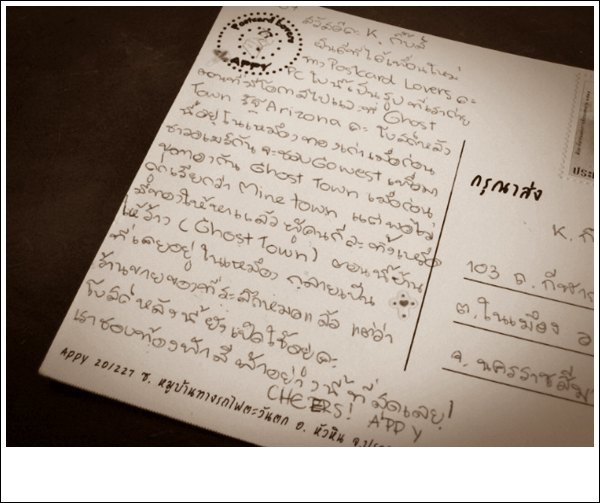 Postcard Lovers
APPY
สวัสดีค่ะ K. กิ๊บลี่
ยินดีที่ได้เพื่อนใหม่
ทาง Postcard Lovers ค่ะ
PC ใบนี้เป็นรูปที่เราถ่าย
ตอนที่มีโอกาสไปแวะที่ Ghost
Town รัฐ Arizona ค่ะ โบสถ์หลัง
นี้อยู่ในเหมืองทองเก่าเมื่อก่อน
ชาวอเมริกันจะชอบ Go west เพื่อมา
ขุดทองกัน Ghost Town เมื่อก่อน
ถูกเรียกว่า Mine town แต่พอไม่
มีทองให้หาแล้ว ผู้คนก็ละทิ้งเหมือง
ให้ร้าง (Ghost Town) ตอนนี้บ้าน
ที่เคยอยู่ในเหมือง กลายเป็น
ร้านขายของที่ระลึกหมดแล้ว แต่ว่า
โบสถ์หลังนี้ยังเปิดใช้อยู่ค่ะ
เราชอบท้องฟ้าสีฟ้าอย่างงี้ที่สุดเลย!
CHEERS! APPY
APPY 201/227 ซ. หมู่บ้านทางรถไฟตะวันตก อ. หัวหิน จ.ประ
ประ
กรุณาส่ง
K. กิ
103 ถ. กีฬา
ต. ในเมือง อ
จ. นครราชสีมา